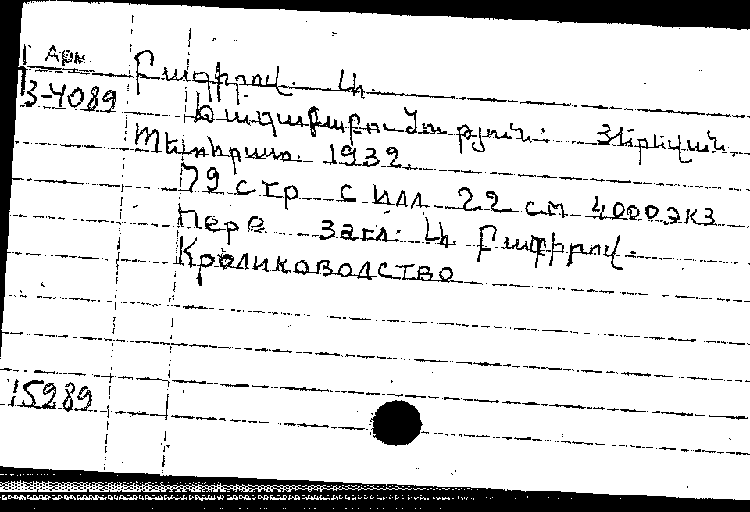 Арм.
3-4089
Բագիրով. Ս.
Ճագարաբուծություն: Յերեվան,
Պետհրատ. 1932.
79 стр с илл 22 см 4000 экз
Пере загл:
Кролиководство
15289